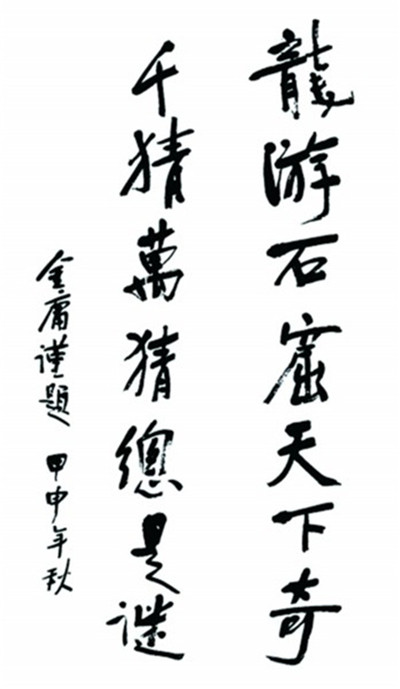 龍游石窟天下奇
千猜萬猜總是谜
金庸谨題 甲申年秋